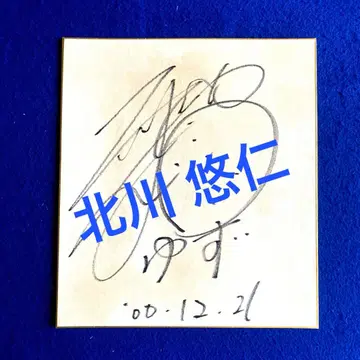 北川 悠仁
ゆず
'00.12.21